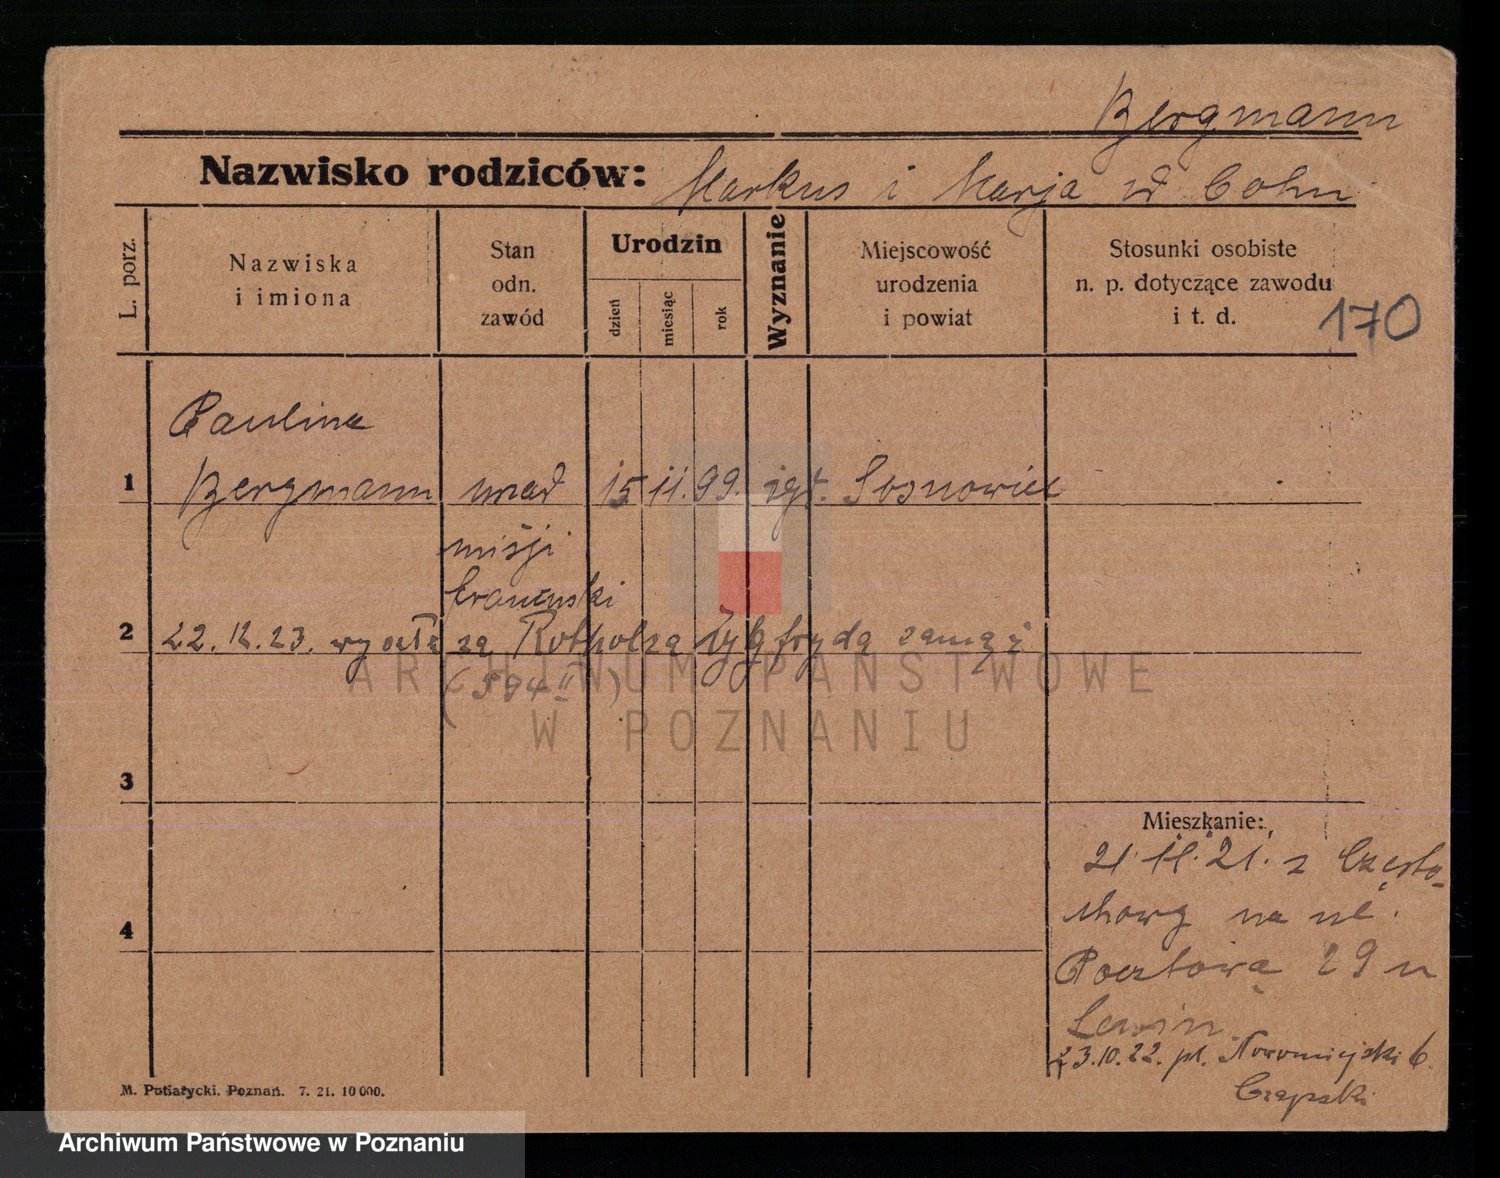 Bergmann
Nazwisko rodziców: Markus i Marja zd Cohn
L. porz.
Nazwiska
i imiona
Stan
odn.
zawód
Urodzin
dzień
miesiąc
rok
Wyznanie
Miejscowość
urodzenia
i powiat
Stosunki osobiste
n. p. dotyczące zawodu
i t. d.
170
Paulina
1 Bergmann 15 11. 99. Sosnowiec
misji
francuski
2 22. 12. 23. wyszła za Rotholza Zygfryda zamąż
(594 II)
ARCHIWUM PAŃSTWOWE
W POZNANIU
3
Mieszkanie:
21 11. 21. z Często-
4 chowy na ul.
Pocztową 29 u
Lewin
23.10.22. pl. Nowomiejski 6.
Czapski
M. Putiatycki. Poznań. 7. 21. 10 000.
Archiwum Państwowe w Poznaniu